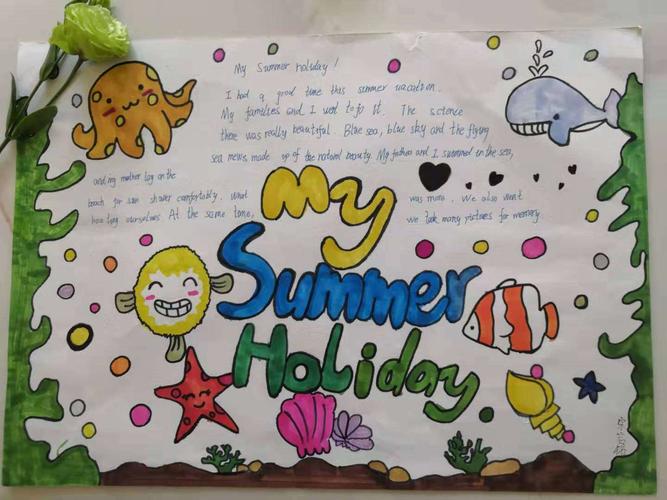 My summer holiday!
I had a good time this summer vacation.
My families and I went to it. The science
there was really beautiful. Blue sea, blue sky and the flying
sea mews, made up of the natural beauty. My father and I swimmed in the sea,
and my mother lay on the
beach for sun shower comfortably. What was more, we also went
boating ourselves. At the same time, we took many pictures for memory.
My
Summer
Holiday